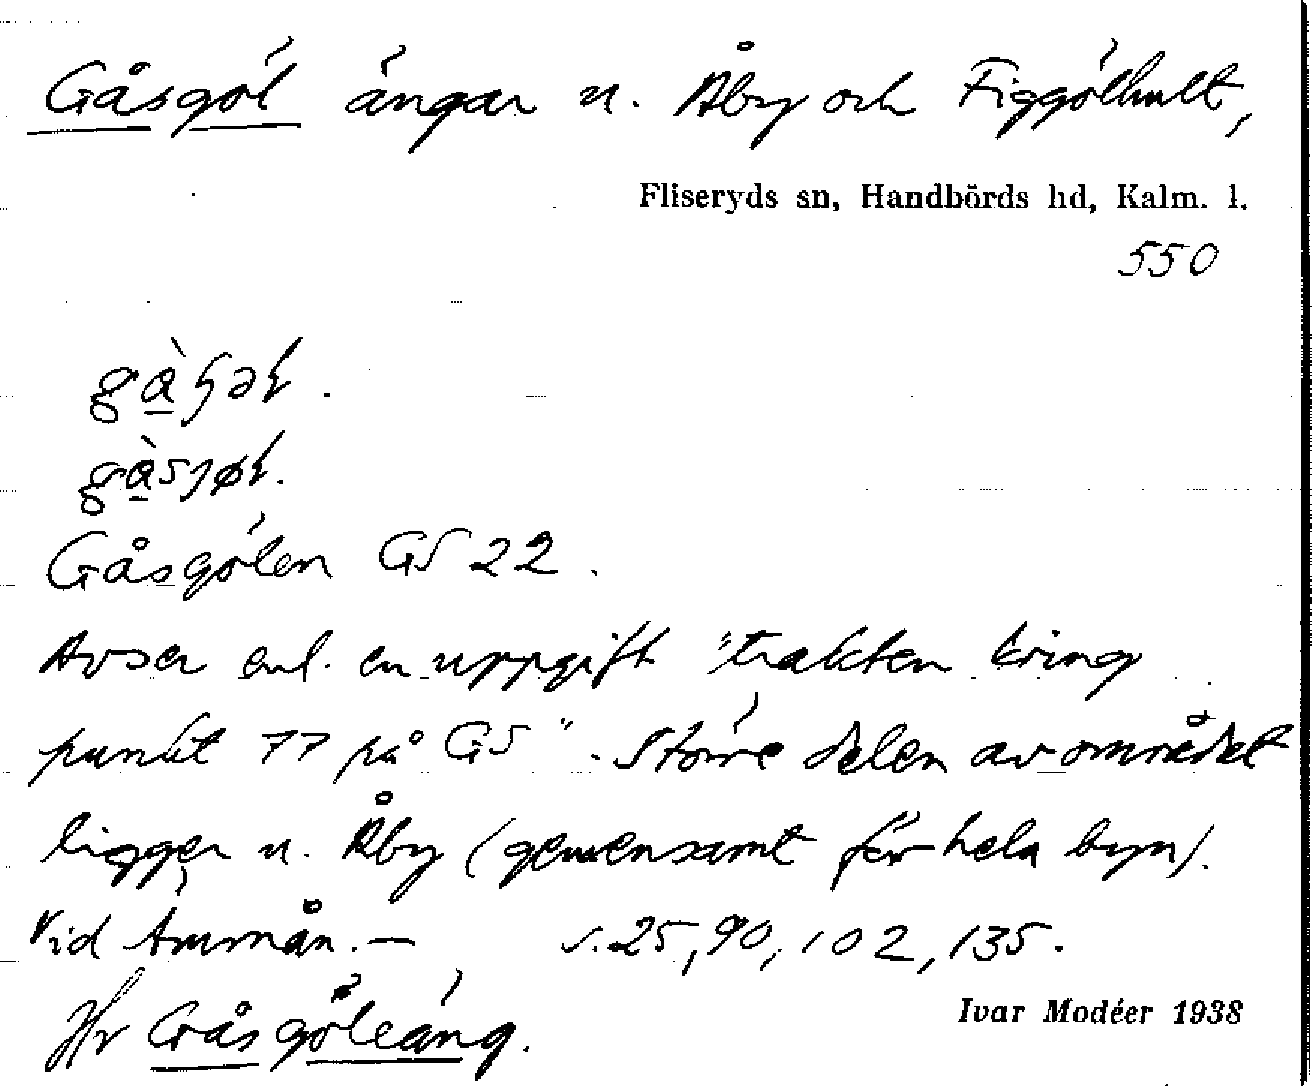 Gåsgöl ängar u. Åby och Figgölhult,
Fliseryds sn, Handbörds hd, Kalm. l.
550
Gåsgölen GS 22.
Avser enl. en uppgift "trakten kring
punkt 77 på GS". Större delen av området
ligger u. Åby (gemensamt för hela byn).
Vid Ämmån. — s. 25, 90, 102, 135.
Jfr Gåsgöleäng.
Ivar Modéer 1938